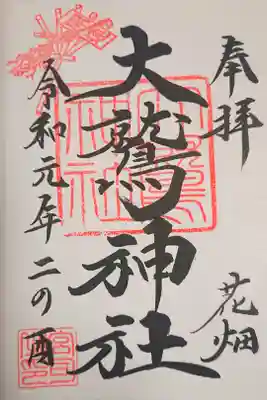 奉拝
花畑
大鷲神社
令和元年二の酉